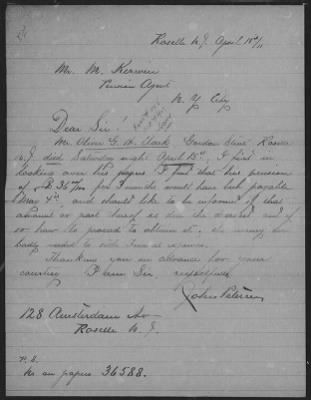 Roselle N.J. April 18th/11
Mr. M. Kerwin
Pension Agent
N. Y. City
Dear Sir:
Mr. Oliver G. H. Clark "Gordon Street" Roselle
N.J. died Saturday night April 15th, I find in
looking over his papers I find that his pension
of $36 00/100 per 3 months would have been payable
May 4th, and should like to be informed if that
amount or part thereof is due the deceased and if
so how to proceed to obtain it, the money being
badly needed to funeral expenses.
Thanking you in advance for your
courtesy I am Sir, respectfully
John Peterson
128 Amsterdam Av
Roselle N. J.
P.S.
No on papers 36588.